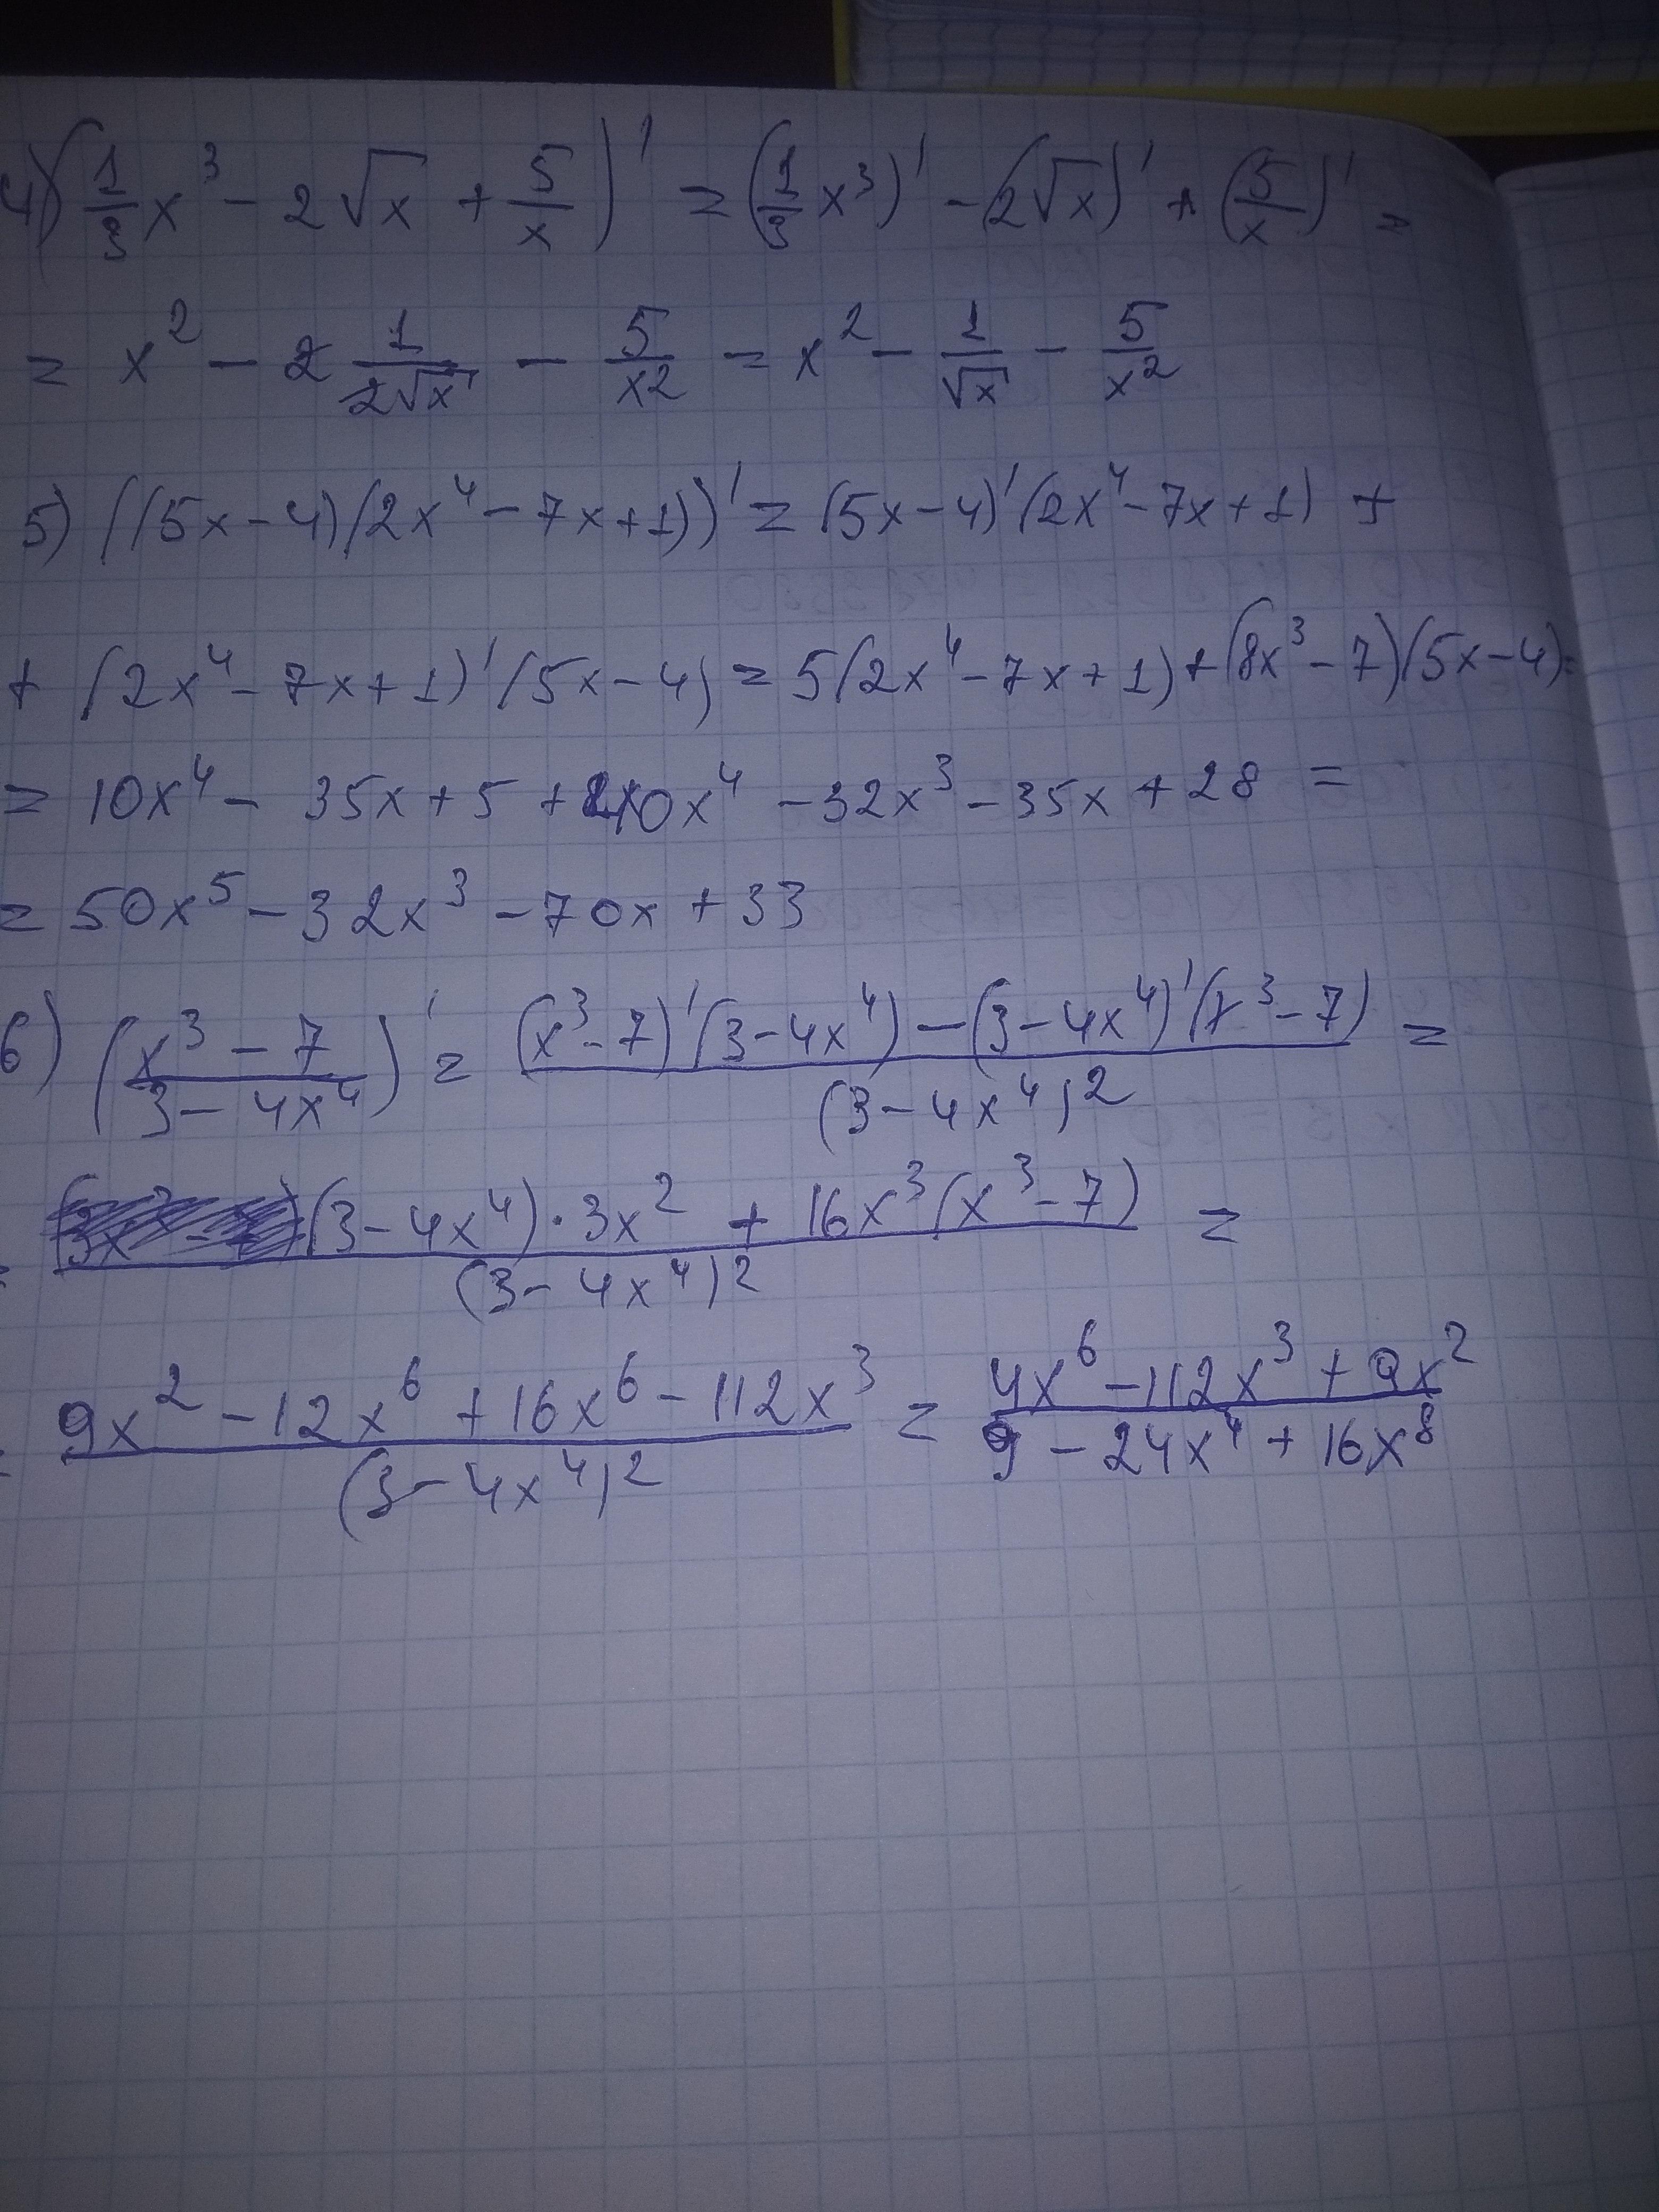 4) (1/3 x^3 - 2√x + 5/x)' = (1/3 x^3)' - (2√x)' + (5/x)' =
= x^2 - 2 1/(2√x) - 5/x2 = x^2 - 1/√x - 5/x^2
5) ((5x-4)(2x^4-7x+1))' = (5x-4)'(2x^4-7x+1) +
+ (2x^4-7x+1)'(5x-4) = 5(2x^4-7x+1)+(8x^3-7)(5x-4)=
= 10x^4 - 35x+5 + 40x^4 - 32x^3 - 35x + 28 =
= 50x^5 - 32x^3 - 70x + 33
6) ((x^3-7)/(3-4x^4))' = ((x^3-7)'(3-4x^4) - (3-4x^4)'(x^3-7))/(3-4x^4)^2 =
= ((3-4x^4)·3x^2 + 16x^3(x^3-7))/(3-4x^4)^2 =
= (9x^2 - 12x^6 + 16x^6 - 112x^3)/(3-4x^4)^2 = (4x^6 - 112x^3 + 9x^2)/(9 - 24x^4 + 16x^8)